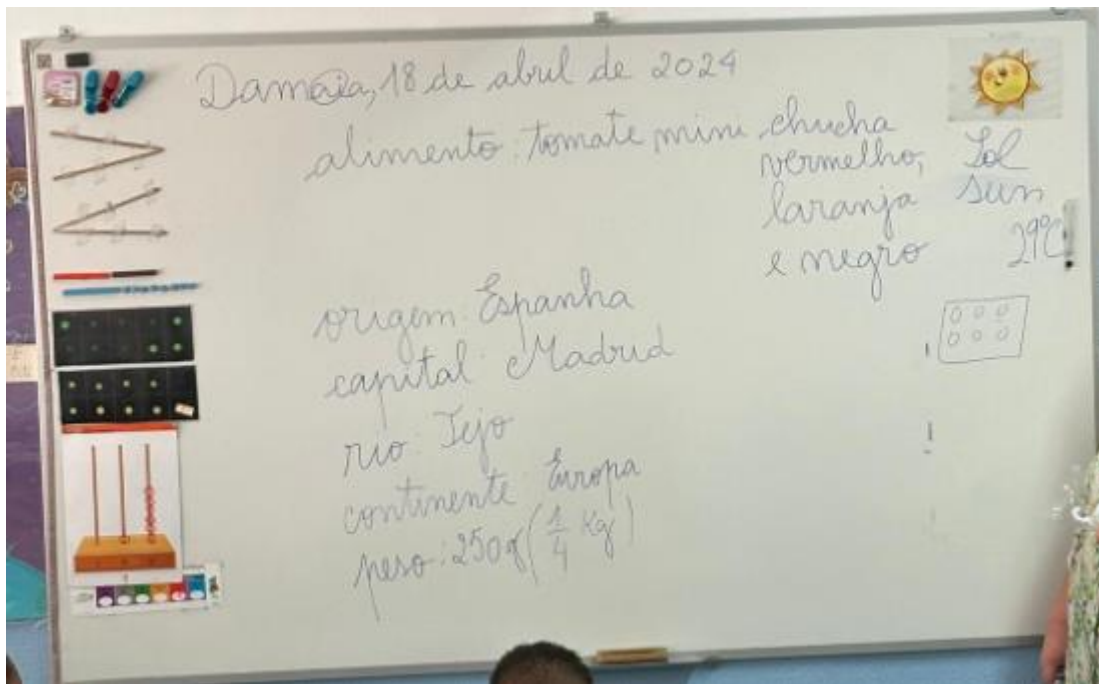 Damaia, 18 de abril de 2024
alimento: tomate mini chucha
vermelho,
laranja
e negro
Sol
sun
29ºC
origem: Espanha
capital: Madrid
rio: Tejo
continente: Europa
peso: 250g (1/4 Kg)